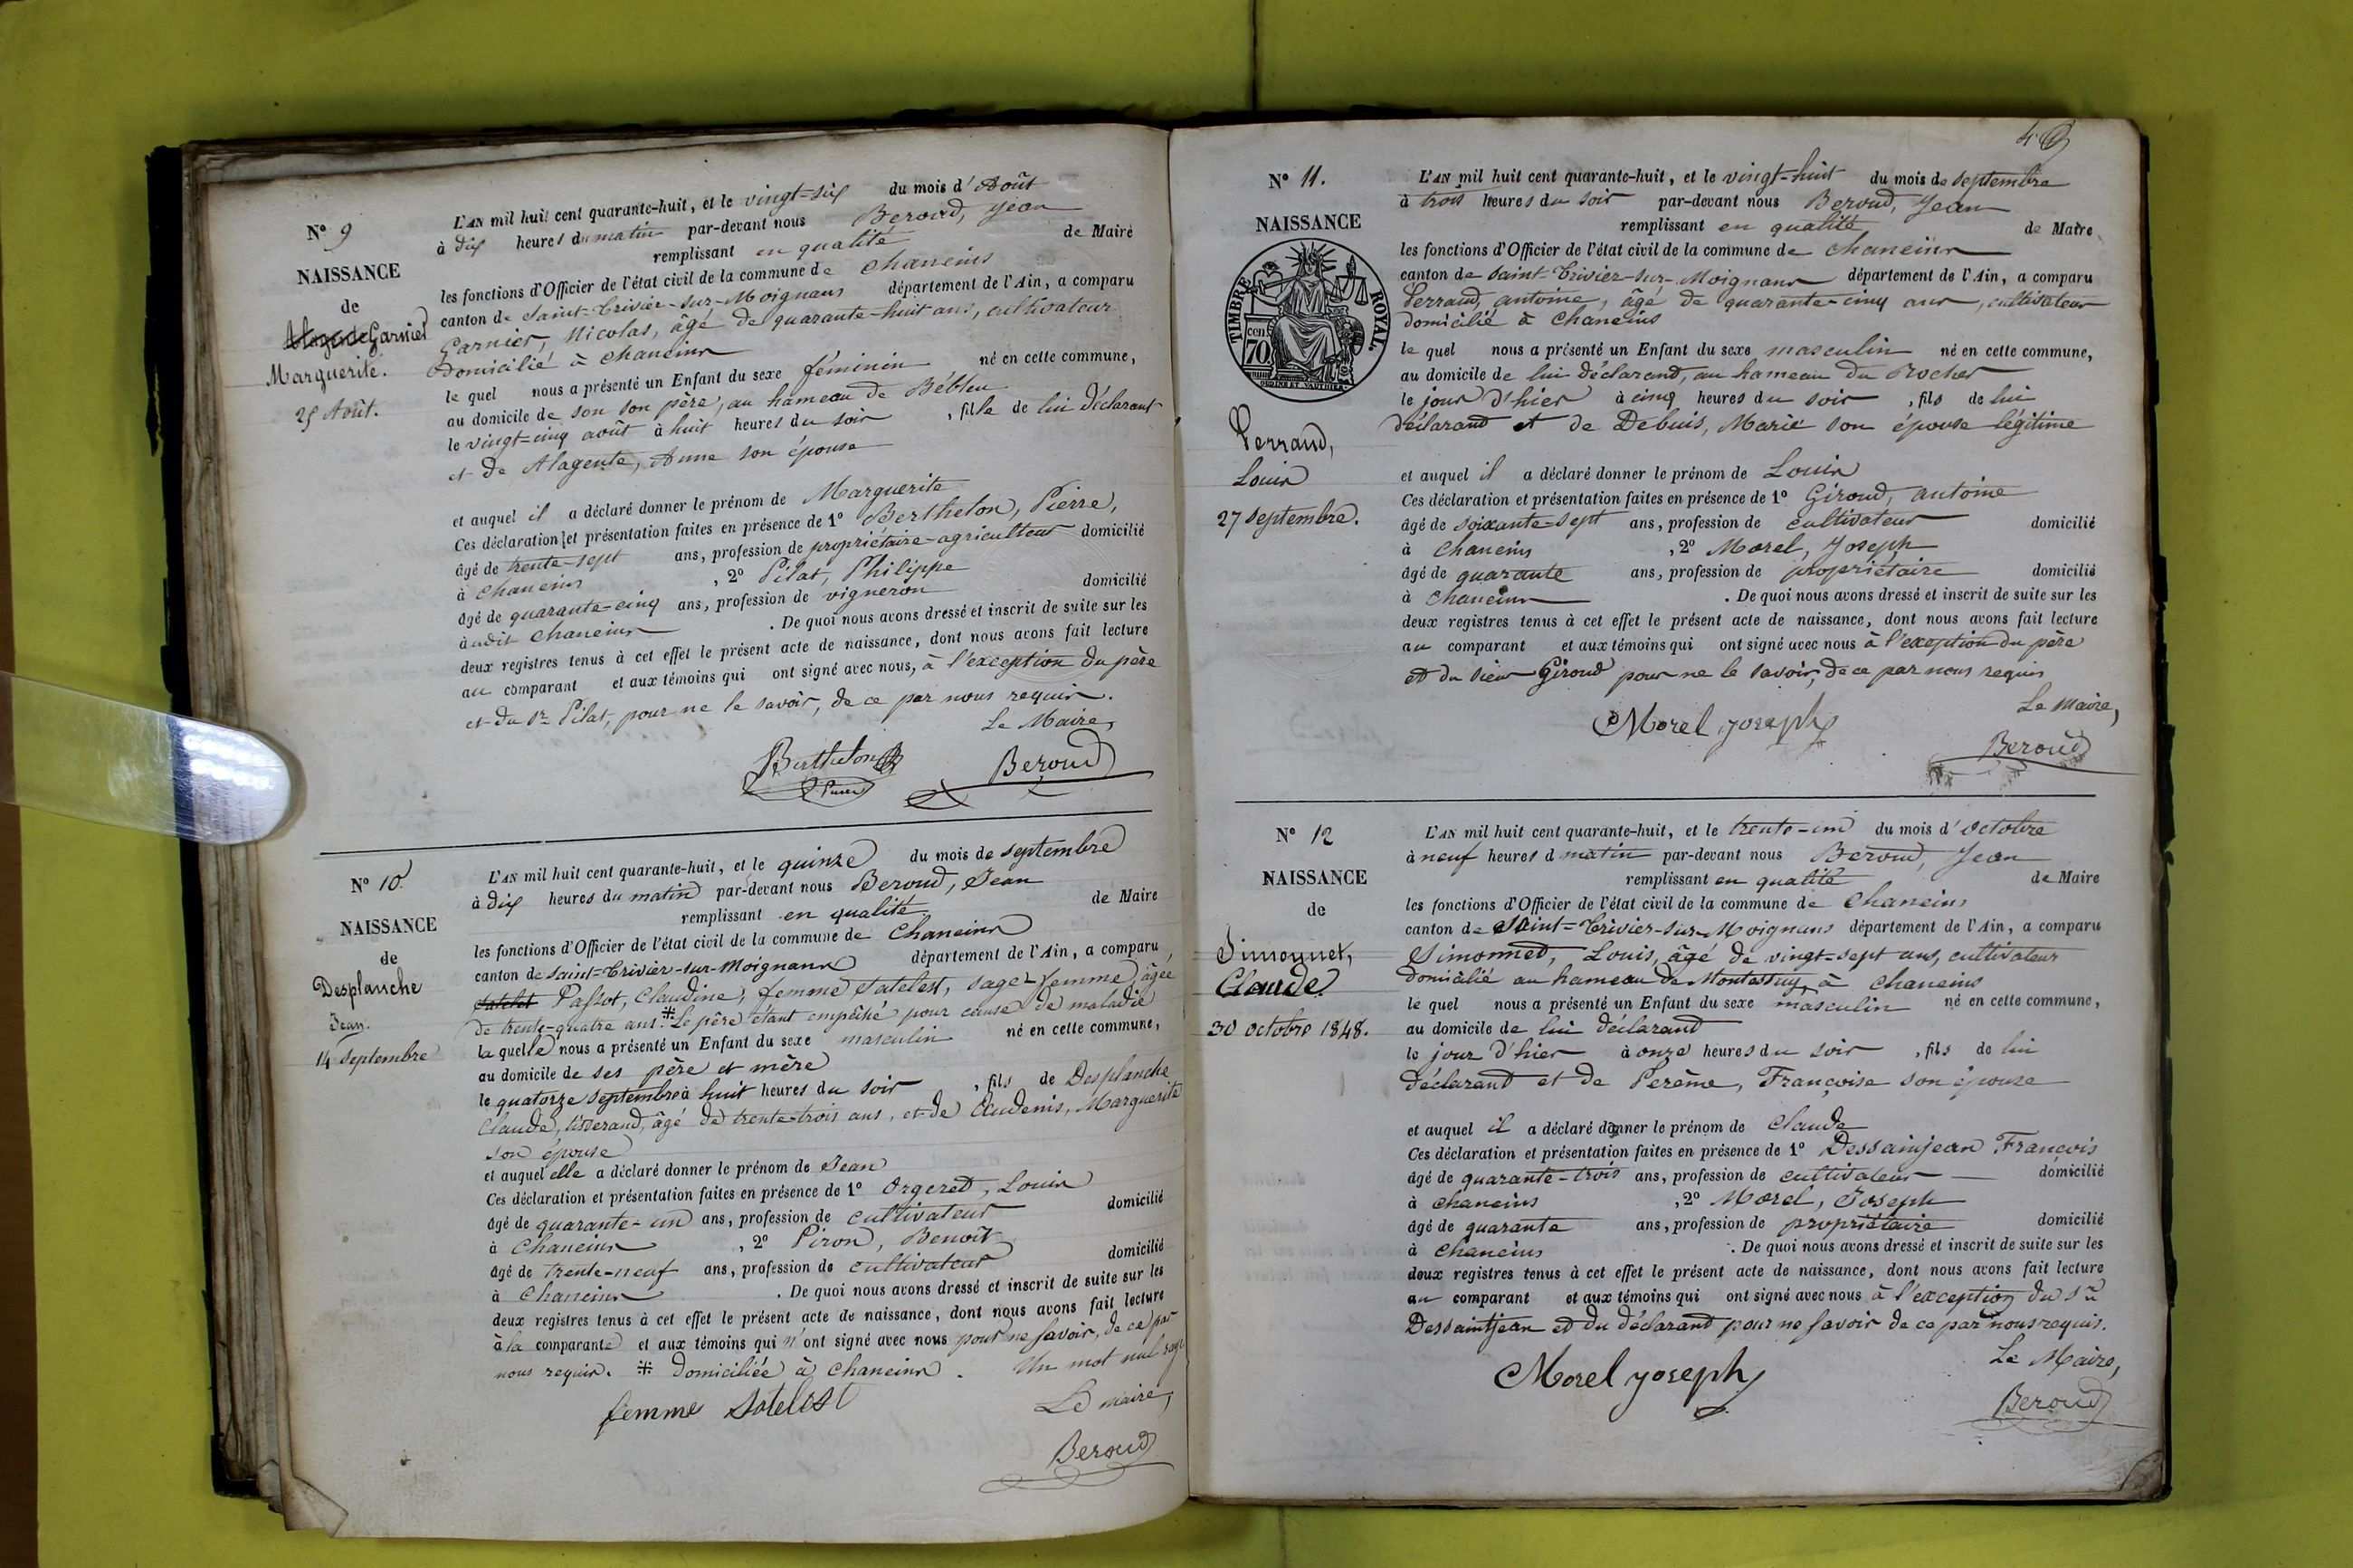 N° 9
NAISSANCE
de
Garnier
Marguerite.
25 Août.
L'AN mil huit cent quarante-huit, et le vingt-six du mois d'Août
à dix heures du matin par-devant nous Beroud, Jean
remplissant en qualité de Maire
les fonctions d'Officier de l'état civil de la commune de Chaneins
canton de Saint-Trivier-sur-Moignans département de l'Ain, a comparu
Garnier, Nicolas, âgé de quarante-huit ans, cultivateur
domicilié à Chaneins
le quel nous a présenté un Enfant du sexe féminin né en cette commune,
au domicile de son son père, au hameau de Bébleu
le vingt-cinq août à huit heures du soir, fille de lui déclarant
et de Alagente, Anne son épouse
et auquel il a déclaré donner le prénom de Marguerite
Ces déclaration et présentation faites en présence de 1° Berthelon, Pierre,
âgé de trente-sept ans, profession de propriétaire-agriculteur domicilié
à Chaneins, 2° Pilat, Philippe
âgé de quarante-cinq ans, profession de vigneron domicilié
à udit Chaneins. De quoi nous avons dressé et inscrit de suite sur les
deux registres tenus à cet effet le présent acte de naissance, dont nous avons fait lecture
au comparant et aux témoins qui ont signé avec nous, à l'exception du père
et du Sr Pilat, pour ne le savoir, de ce par nous requis.
Le Maire,
Berthelon Beroud
N° 10
NAISSANCE
de
Desplanche
Jean.
14 Septembre
L'AN mil huit cent quarante-huit, et le quinze du mois de septembre
à dix heures du matin par-devant nous Beroud, Jean
remplissant en qualité de Maire
les fonctions d'Officier de l'état civil de la commune de Chaneins
canton de Saint-Trivier-sur-Moignans département de l'Ain, a comparu
Passot, Claudine, femme Satelest, sage-femme, âgée
de trente-quatre ans.* Le père étant empêché pour cause de maladie
la quelle nous a présenté un Enfant du sexe masculin né en cette commune,
au domicile de ses père et mère
le quatorze septembre à huit heures du soir, fils de Desplanche
Claude, tisserand, âgé de trente-trois ans, et de Claudenis, Marguerite
son épouse
et auquel elle a déclaré donner le prénom de Jean
Ces déclaration et présentation faites en présence de 1° Orgeret, Louis
âgé de quarante-un ans, profession de cultivateur domicilié
à Chaneins, 2° Piron, Benoît
âgé de trente-neuf ans, profession de cultivateur domicilié
à Chaneins. De quoi nous avons dressé et inscrit de suite sur les
deux registres tenus à cet effet le présent acte de naissance, dont nous avons fait lecture
à la comparante et aux témoins qui n'ont signé avec nous pour ne savoir, de ce par
nous requis. * Domiciliée à Chaneins. Un mot nul rayé
Le maire,
femme Satelest
Beroud
N° 11.
NAISSANCE
TIMBRE ROYAL.
70 cen.
Perraud,
Louis
27 septembre.
L'AN mil huit cent quarante-huit, et le vingt-huit du mois de septembre
à trois heures du soir par-devant nous Beroud, Jean
remplissant en qualité de Maire
les fonctions d'Officier de l'état civil de la commune de Chaneins
canton de Saint-Trivier-sur-Moignans département de l'Ain, a comparu
Perraud, antoine, âgé de quarante-cinq ans, cultivateur
domicilié à Chaneins
le quel nous a présenté un Enfant du sexe masculin né en cette commune,
au domicile de lui déclarand, au hameau du Rocher
le jour d'hier à cinq heures du soir, fils de lui
déclarand et de Debuis, Marie son épouse légitime
et auquel il a déclaré donner le prénom de Louis
Ces déclaration et présentation faites en présence de 1° Giroud, antoine
âgé de soixante-sept ans, profession de cultivateur domicilié
à Chaneins, 2° Morel, Joseph
âgé de quarante ans, profession de propriétaire domicilié
à Chaneins. De quoi nous avons dressé et inscrit de suite sur les
deux registres tenus à cet effet le présent acte de naissance, dont nous avons fait lecture
au comparant et aux témoins qui ont signé avec nous à l'exception du père
et du sieur Giroud pour ne le savoir, de ce par nous requis
Le Maire,
Morel joseph
Beroud
N° 12
NAISSANCE
de
Simonnet,
Claude.
30 octobre 1848.
L'AN mil huit cent quarante-huit, et le trente-un du mois d'octobre
à neuf heures d matin par-devant nous Beroud, Jean
remplissant en qualité de Maire
les fonctions d'Officier de l'état civil de la commune de Chaneins
canton de Saint-Trivier-sur-Moignans département de l'Ain, a comparu
Simonned, Louis, âgé de vingt-sept ans, cultivateur
domicilié au hameau de Montassuy, à Chaneins
le quel nous a présenté un Enfant du sexe masculin né en cette commune,
au domicile de lui déclarand
le jour d'hier à onze heures du soir, fils de lui
déclarand et de Perême, Françoise son épouse
et auquel il a déclaré donner le prénom de Claude
Ces déclaration et présentation faites en présence de 1° Dessainjean François
âgé de quarante-trois ans, profession de cultivateur domicilié
à Chaneins, 2° Morel, Joseph
âgé de quarante ans, profession de propriétaire domicilié
à Chaneins. De quoi nous avons dressé et inscrit de suite sur les
deux registres tenus à cet effet le présent acte de naissance, dont nous avons fait lecture
au comparant et aux témoins qui ont signé avec nous à l'exception du Sr
Dessaintjean et du déclarand pour ne savoir de ce par nous requis.
Le Maire,
Morel joseph
Beroud